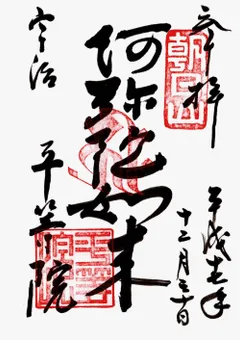 奉拝
朝日山
平成
十二月三十日
阿弥陀如来
宇治
平等院